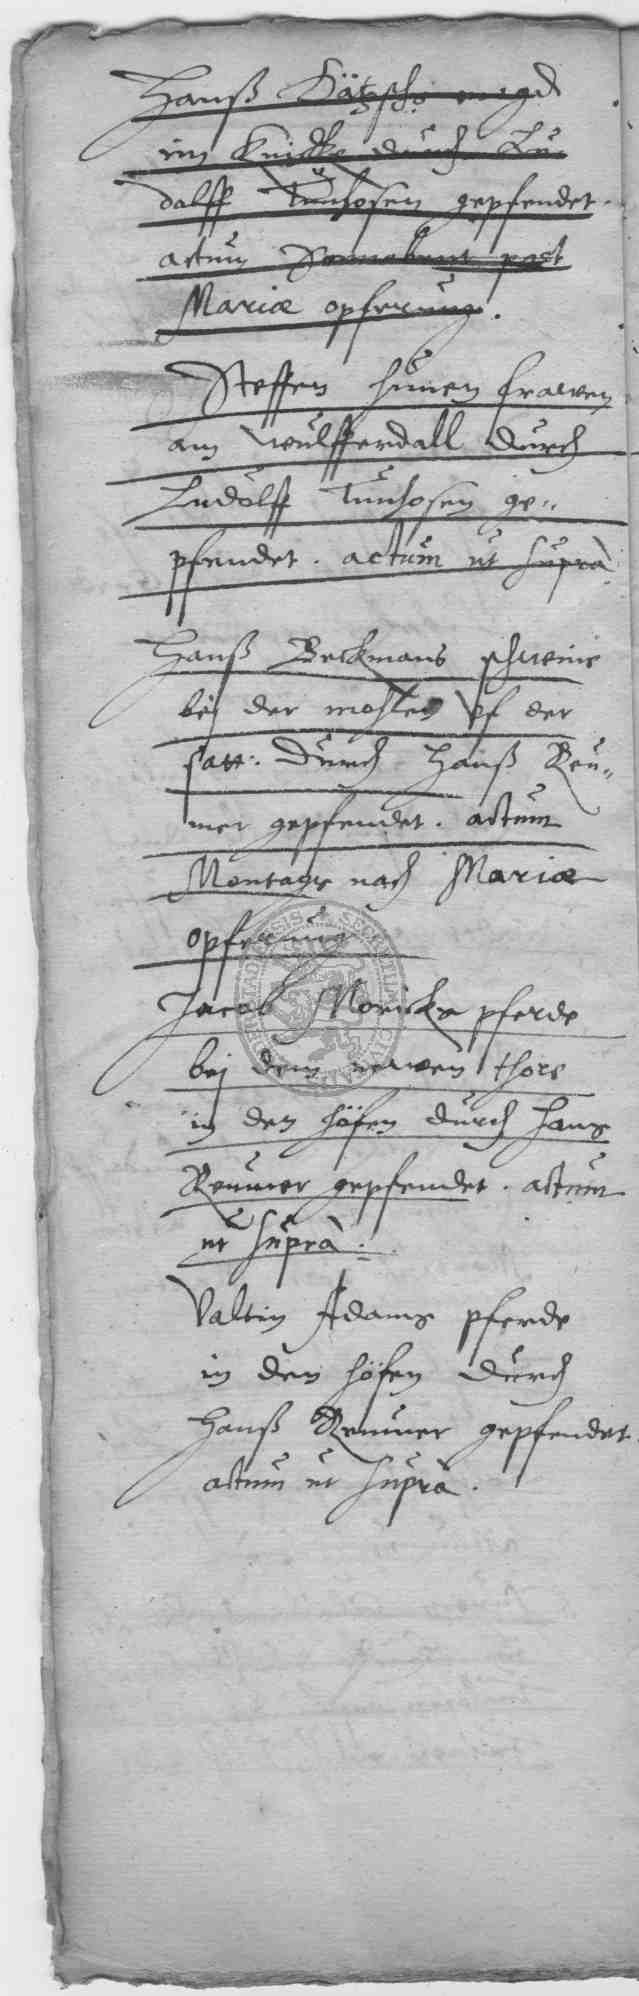 Hanß Kätzschs magd
im Knicke durch Lu-
dolff Tunhosen gepfendet.
actum Sonnabent post
Mariæ opferung.
Steffen hunen frawen
am Wulfferdall durch
Ludolff Tunhosen ge-
pfendet. actum ut suprà
Hanß Beckmans schweine
bei der mohlen uf der
satt: durch Hanß Reu-
mer gepfendet. actum
Montags nach Mariæ
opferung
Jacob Moricks pferde
bej dem newen thore
in den höfen durch Hans
Reumer gepfendet. actum
ut suprà.
Valtin Adams pferde
in den höfen durch
Hanß Reumer gepfendet.
actum ut suprà.